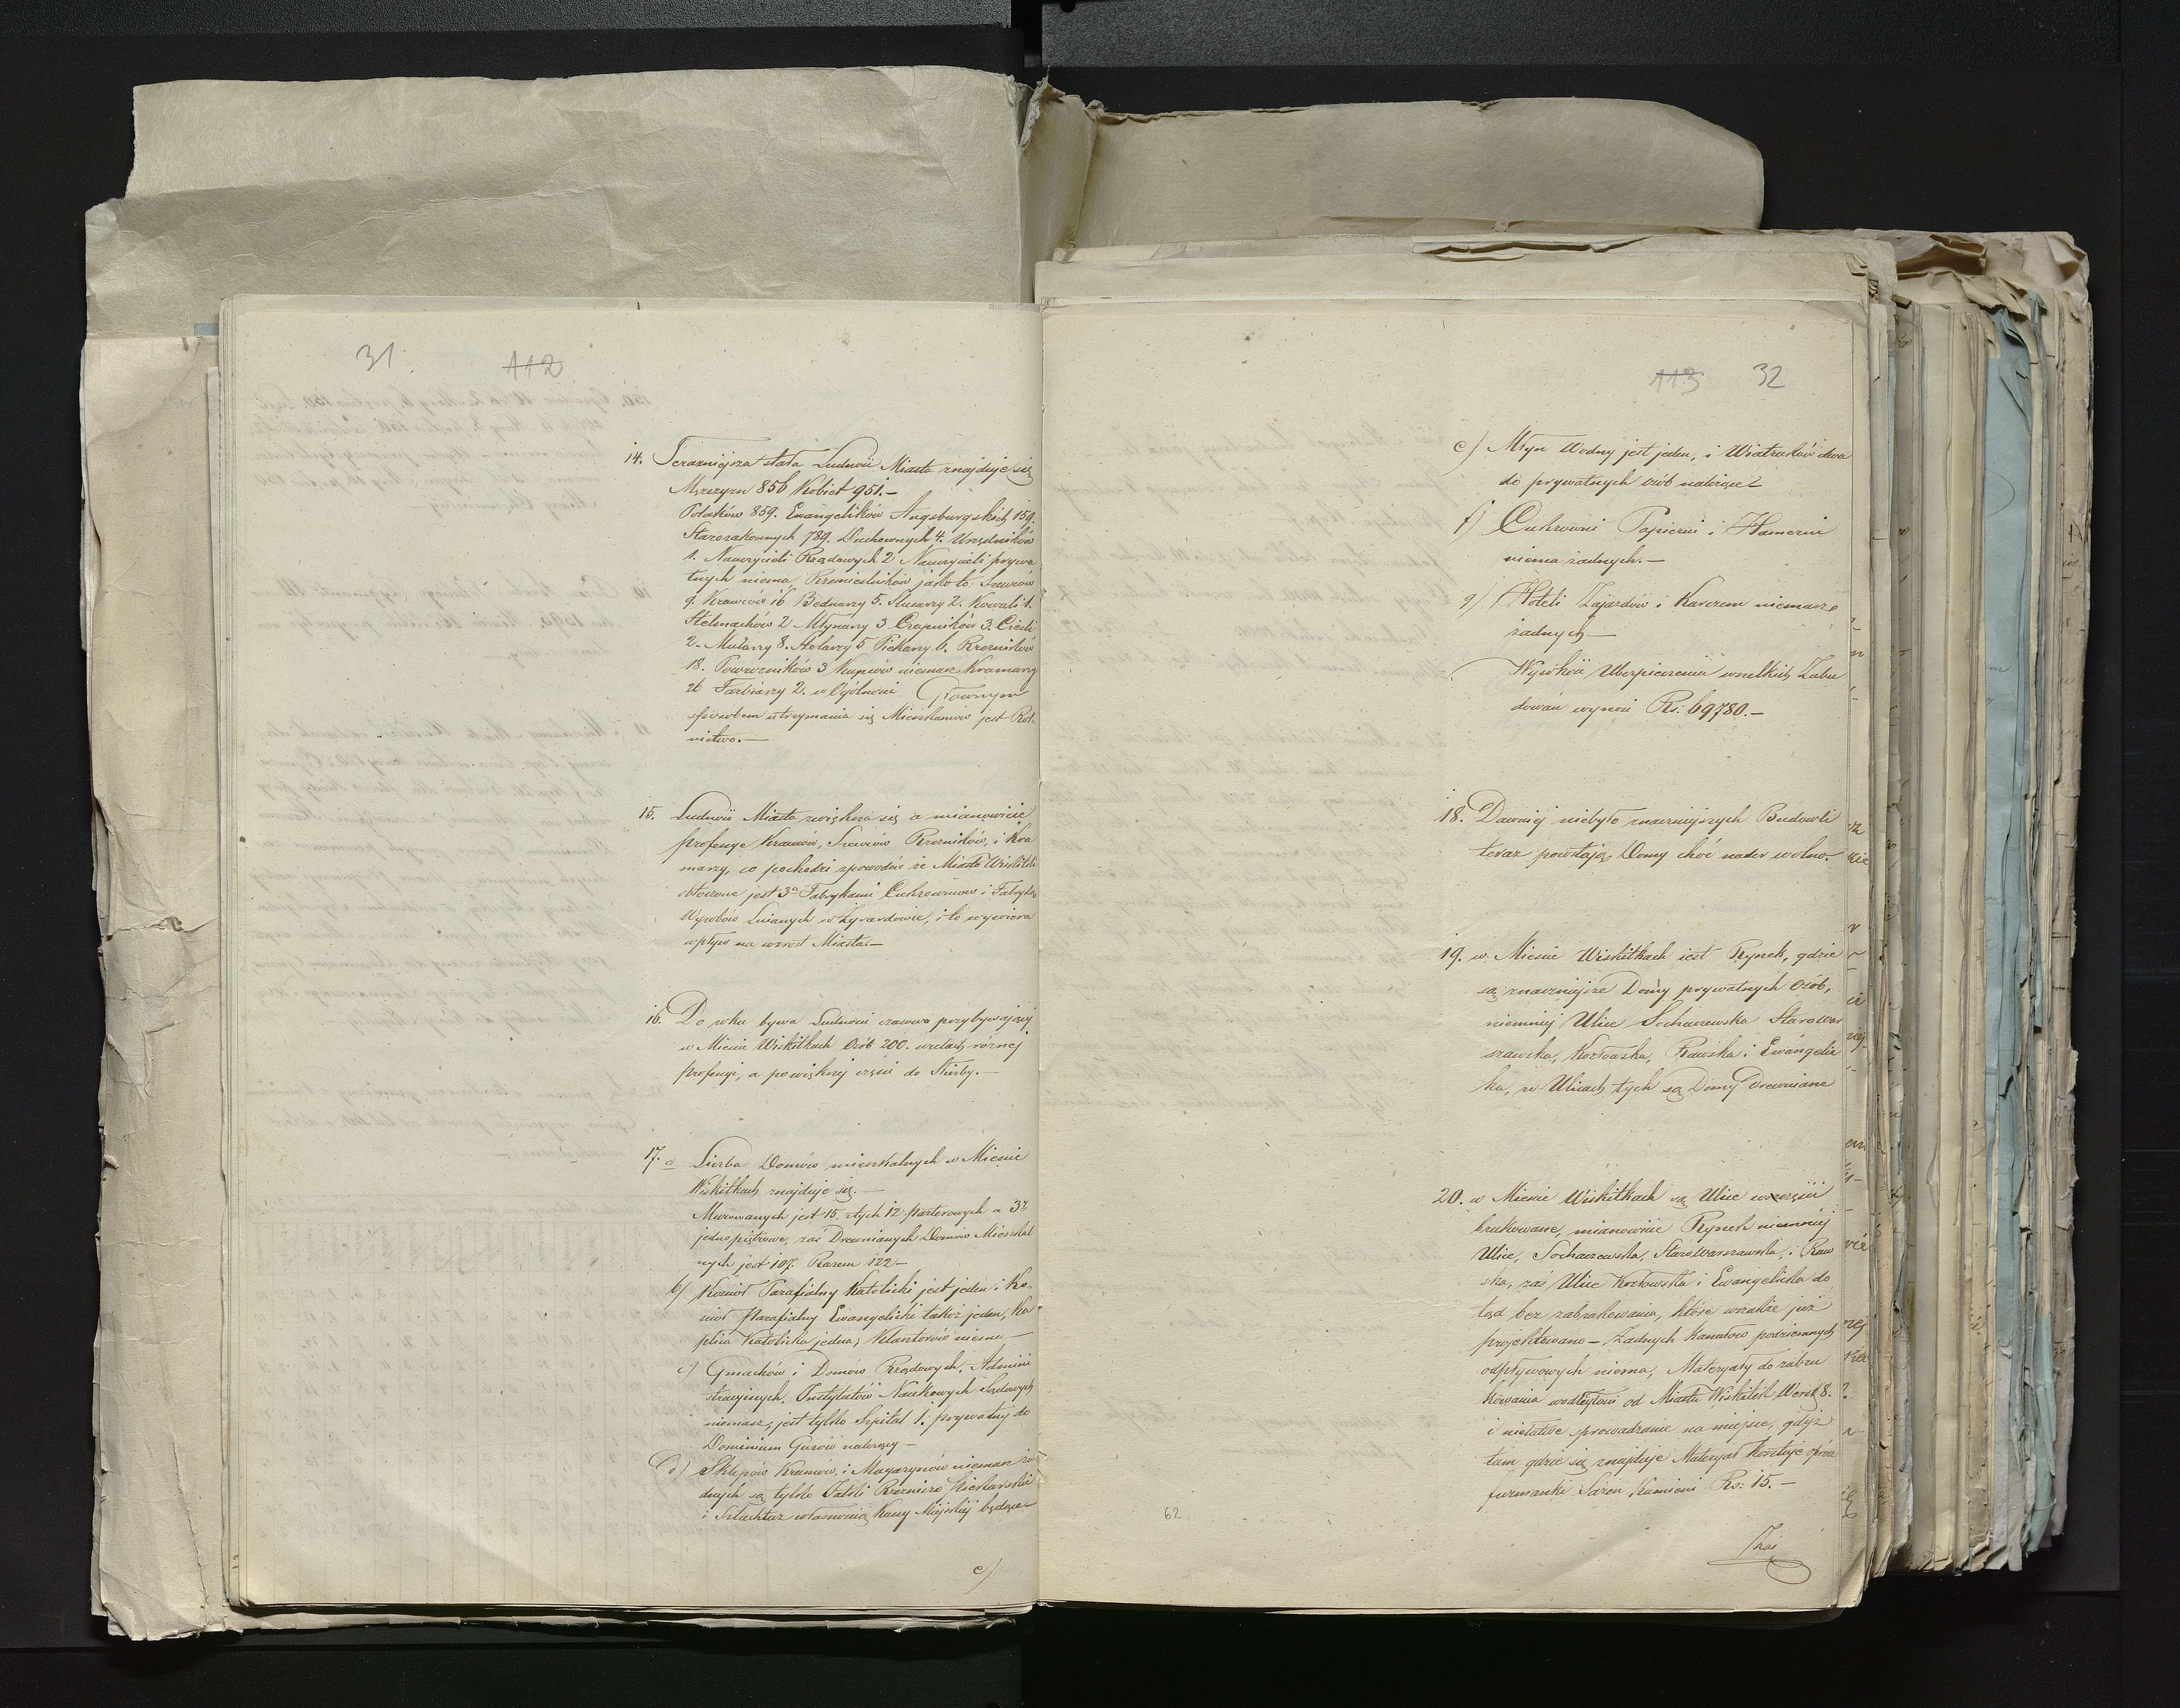 31. 112
14. Terazniejsza stała Ludność Miasta znajduje się
Męzczyzn 856 Kobiet 951.—
Polaków 859. Ewangelików Augsburgskich 159.
Starozakonnych 789. Duchownych 4. Urzędników
1. Nauczycieli Rządowych 2 Nauczycieli prywa
tnych niema, Rzemieslników jako to: Szewców
9. Krawców 16 Bednarzy 5. Slusarzy 2. Kowali 1.
Stelmachów 2 Młynarzy 3 Czapników 3. Cieśli
2. Mularzy 8. Stolarzy 5 Piekarzy 6. Rzezników
18. Powrozników 3 Kupców niemasz Kramarzy
26 Farbiarzy 2. w Ogólności Głownym
sposobem utrzymania się Mieszkanców jest Rol
nictwo.—
15. Ludność Miasta zwiększa się a mianowicie
professye Krawców, Szewców Rzezników, i Kra
marzy, co pochodzi zpowodów że Miasto Wiskitki
otoczone jest 3a Fabrykami Cukrowniow i Fabryką
Wyrobów Lnianych w Żyrardowie, i to wywiera
wpływ na wzrost Miasta.—
16. Do roku bywa Ludności czasowo przybywającej
w Miescie Wiskitkach Osób 200. wcelach różnej
professyi, a powiększej części do Służby.—
17. a Liczba Domów mieszkalnych w Miescie
Wiskitkach znajduje się.—
Murowanych jest 15. ztych 12 parterowych a 3y
jedno piętrowe, zaś Drewnianych Domów Mieszkal
nych jest 107. Razem 122—
b) Kosciół Parafialny Katolicki jest jeden i Ko
sciół Parafialny Ewangelicki takoż jeden, Ka
plica Katolicka jedna, Klasztorów niema—
c) Gmachów i Domów Rządowych, Admini
stracyjnych, Instytutów Naukowych Sądowych
niemasz, jest tylko Szpital 1. prywatny do
Dominium Guzów należący—
d) Sklepów Kramów, i Magazynów niemasz ża
dnych są tylko Jatki Rzeznicze Piekarskie
i Szlachtuz własnością Kassy Miejskiej będące
e)
113 32
e) Młyn Wodny jest jeden, i Wiatraków dwa
do prywatnych osób należące
f) Cukrowni Papierni i Hamerni
niema żadnych.—
g) Hoteli Zajazdów i Karczem niemasz
żadnych—
Wysokość Ubezpieczenia wszelkich Zabu
dowań wynosi Rs: 69780.—
18. Dawniej niebyło znaczniejszych Budowli
teraz powstają Domy choć nader wolno.
19. w Miescie Wiskitkach jest Rynek, gdzie
są znaczniejsze Domy prywatnych Osób,
niemniej Ulice Sochaczewska Starowar
szawska, Kozłowska, Rawska i Ewangelic
ka, w Ulicach tych są Domy Drewniane
20. w Miescie Wiskitkach są Ulice wczęści
brukowane, mianowicie Rynek niemniej
Ulice, Sochaczewska, Starowarszawska, i Raw
ska, zaś Ulice Kozłowska i Ewangelicka do
tąd bez zabrukowania, które wszakże już
projektowano— Żadnych Kanałów podziemnych
odpływowych niema, Materyały do zabru
kowania wodległości od Miasta Wiskitek Werst 8.
i niełatwe sprowadzenie na miejsce, gdyż
tam gdzie się znajduje Materyał kosztuje oprócz
furmanki Sążeń Kamieni Rs: 15.—
Zkąd
62